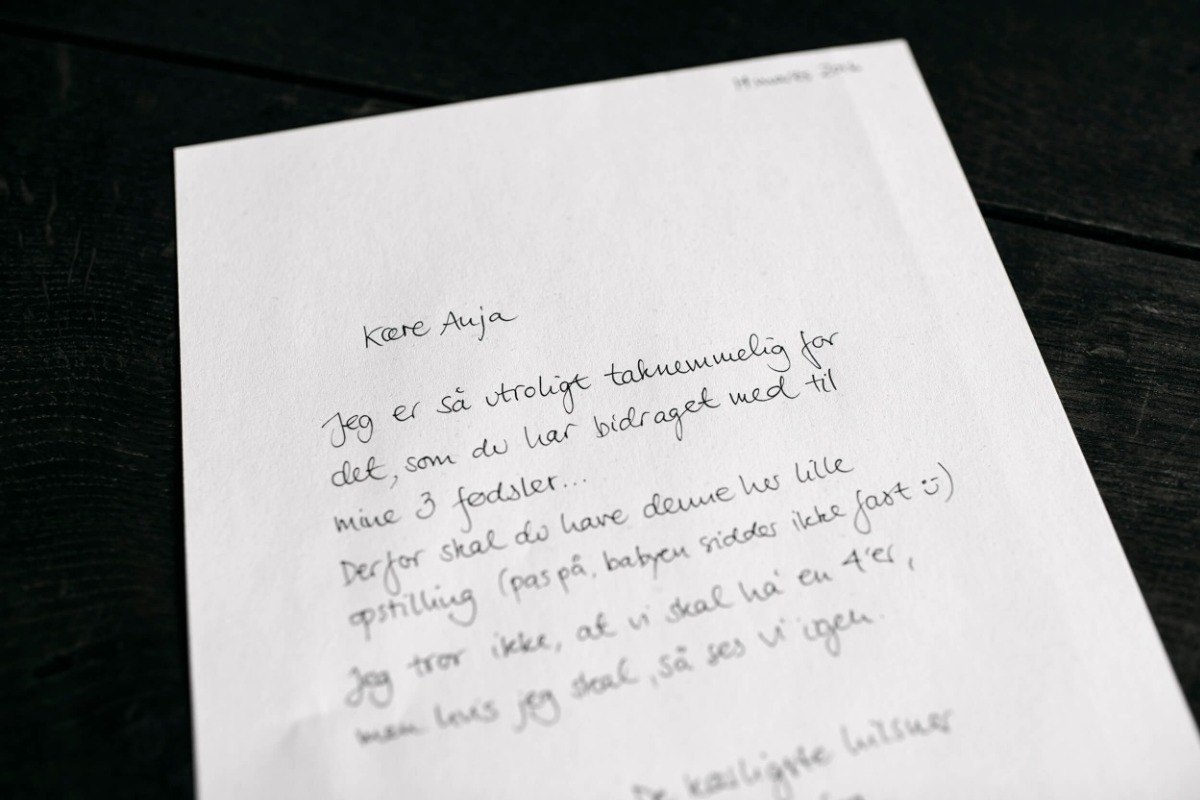 Kære Anja
Jeg er så utroligt taknemmelig for
det, som du har bidraget med til
mine 3 fødsler...
Derfor skal du have denne her lille
opstilling (pas på, babyen sidder ikke fast :))
Jeg tror ikke, at vi skal ha' en 4'er,
men hvis jeg skal, så ses vi igen.
De kærligste hilsner